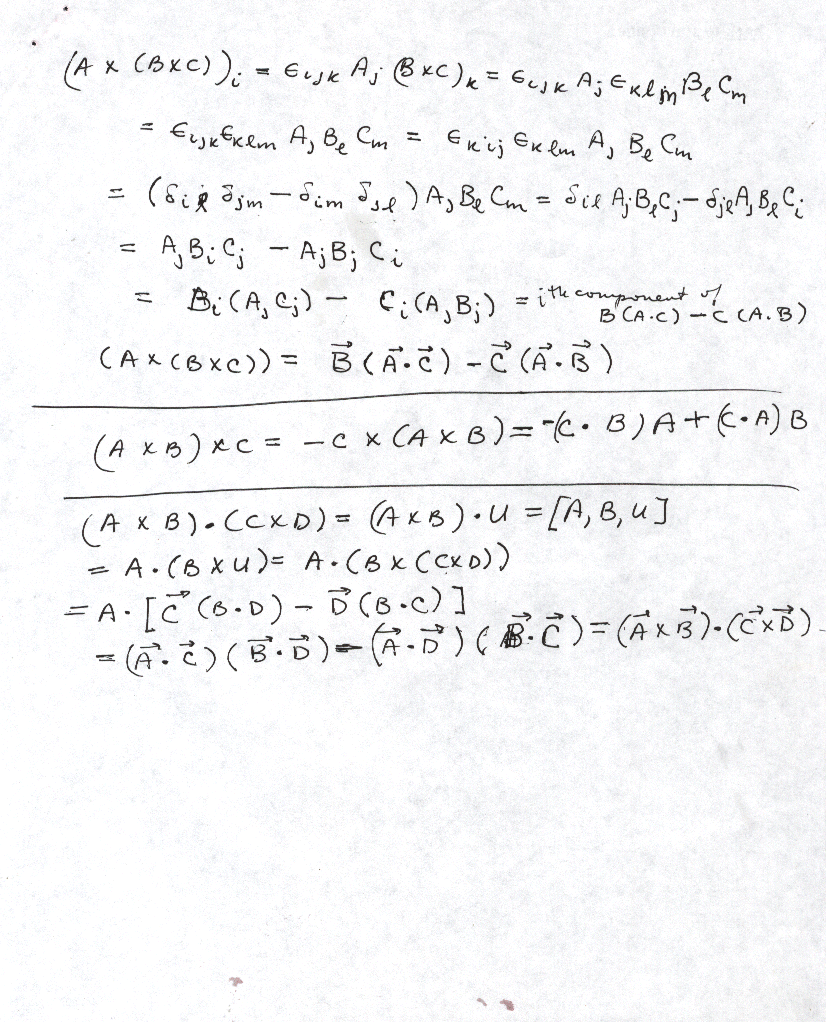 (A x (B×C))ᵢ = ϵᵢⱼₖ Aⱼ (B×C)ₖ = ϵᵢⱼₖ Aⱼ ϵₖₗₘ Bₗ Cₘ
= ϵᵢⱼₖ ϵₖₗₘ Aⱼ Bₗ Cₘ = ϵₖᵢⱼ ϵₖₗₘ Aⱼ Bₗ Cₘ
= (δᵢₗ δⱼₘ − δᵢₘ δⱼₗ) Aⱼ Bₗ Cₘ = δᵢₗ Aⱼ Bₗ Cⱼ − δⱼₗ Aⱼ Bₗ Cᵢ
= Aⱼ Bᵢ Cⱼ − Aⱼ Bⱼ Cᵢ
= Bᵢ (Aⱼ Cⱼ) − Cᵢ (Aⱼ Bⱼ) = ith component of B(A·C) − C(A·B)
(A x (B×C)) = B⃗ (A⃗·C⃗) − C⃗ (A⃗·B⃗)
(A × B) × C = −C × (A × B) = −(C · B) A + (C·A) B
(A × B)·(C×D) = (A×B)·U = [A, B, U]
= A·(B×U) = A·(B×(C×D))
= A·[C⃗ (B·D) − D⃗ (B·C)]
= (A⃗·C⃗)(B⃗·D⃗) − (A⃗·D⃗)(B⃗·C⃗) = (A⃗×B⃗)·(C⃗×D⃗)